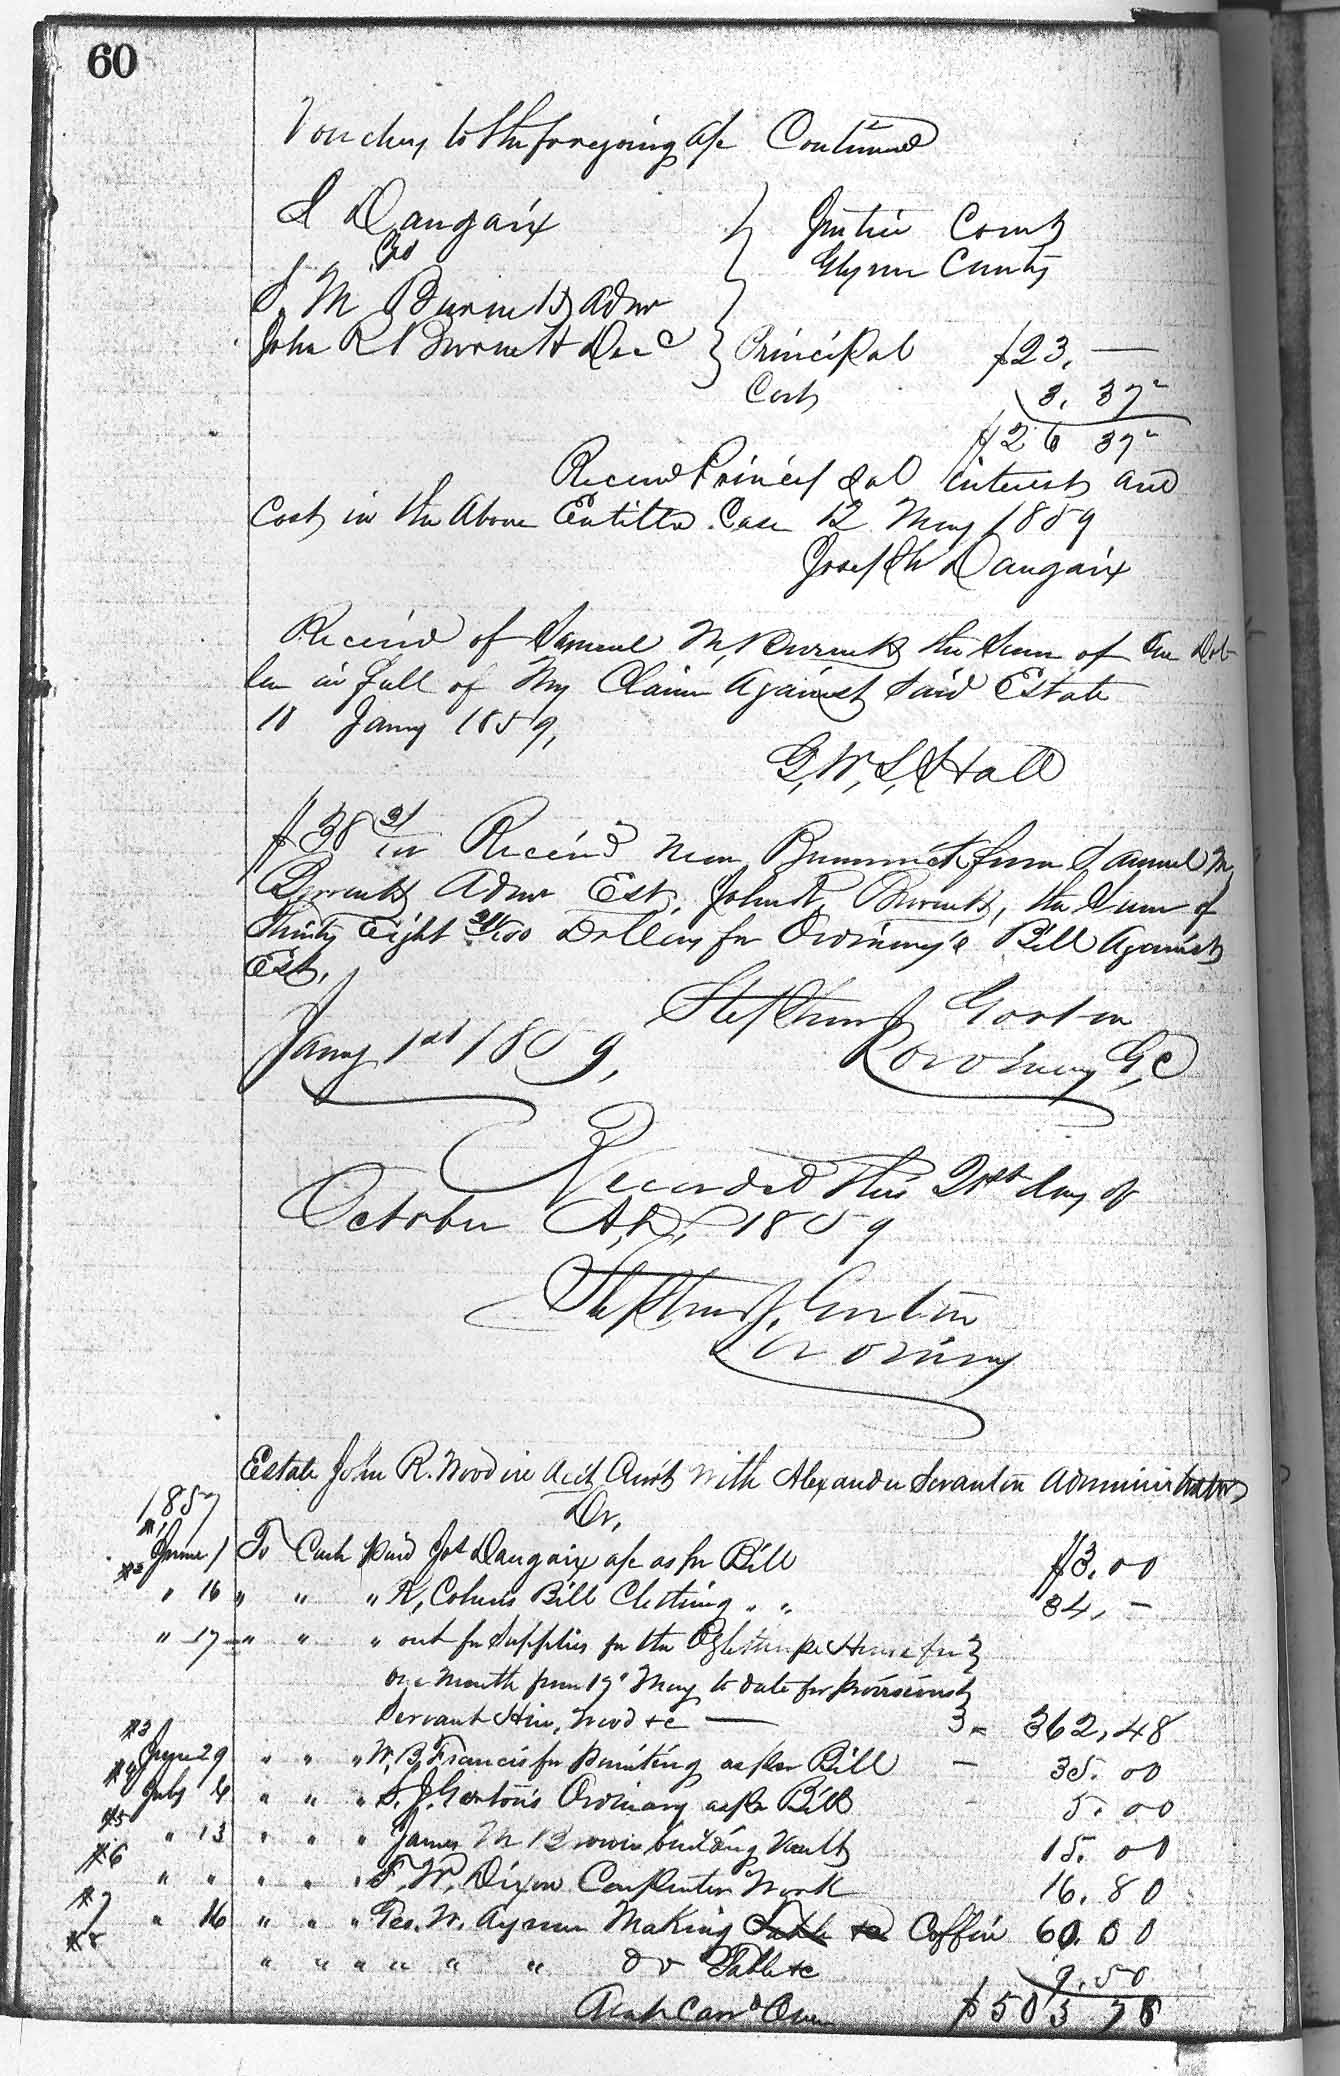 60
Vouchers to the foregoing a/c Continued
J Dangaix
vs
S. M Burnett Admr
John R Burnett Decd
Justice Court
Glynn County
Principal $23. —
Cost 3. 37
$26 37
Received Principal interest and
Cost in the Above Entitled Case 12 May 1859
Joseph Dangaix
Received of Samuel M, Burnett the Sum of One Dol
lar in full of My Claim Against Said Estate
10 Jany 1859,
G, W, S, Hall
$38 31/100 Received New Brunswick from Samuel M
Burnett Admr Est, John R, Burnett, the Sum of
Thirty Eight 31/100 Dollars for Ordinary's Bill Against
Est,
Stephen J Gorton
Jany 1st 1859, Ordinary G, C
Recorded this 21st day of
October A,D, 1859
Stephen J, Gorton
Ordinary
Estate John R. Wood in Acct Curt With Alexander Scranton Administrator
1857 Dr,
June 1 To Cash paid Jos Dangaix a/c as pr Bill $3.00
#2 " 16 " " " R, Cohens Bill Clothing " " 34, —
" 17 " " " out for Supplies for the Oglethorpe House for
one Month from 17 May to date for provisions
Servant Hire, Wood &c — 362,48
#3 June 29 " " " W, B, Francis for painting as per Bill — 35.00
#4 July 6 " " " S. J. Gorton's Ordinary as pr Bill - 5.00
#5 " 13 " " " James M Brown building Vault 15.00
#6 " " " " " F, W, Dixon Carpenter Work 16.80
#7 " 16 " " " Geo. W. Aymar Making Table &c Coffin 60.00
#8 " " " " " " do Table &c 9.50
Amt Carrd Over $503 78